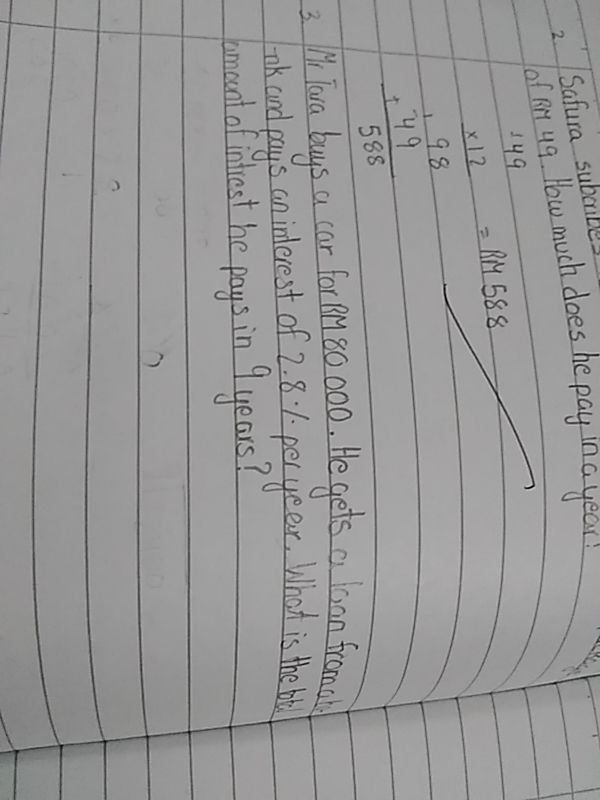 2. Safura subcribes
of RM 49. How much does he pay in a year?
49
×12 = RM 588
98
+ 49
588
3. Mr Tara buys a car for RM 80 000. He gets a loan from a
nk and pays an interest of 2.8 % per year. What is the total
amount of intrest he pays in 9 years?